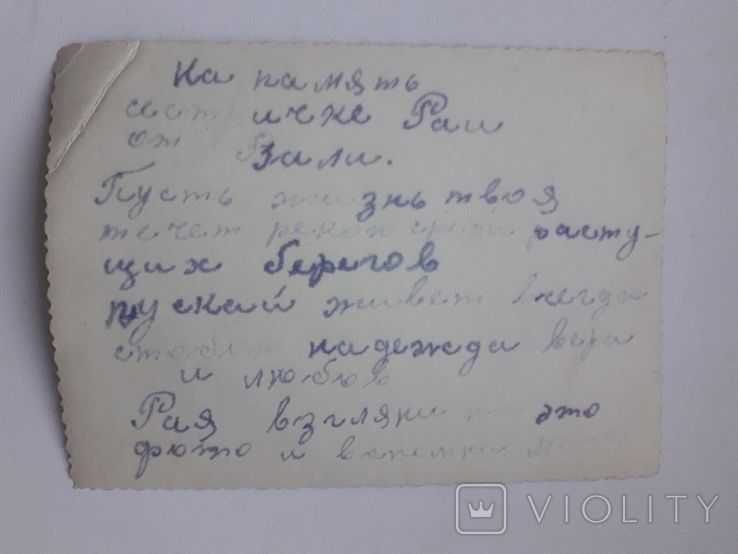 На память
сестричке Раи
от Вали.
Пусть жизнь твоя
течет рекою среди расту-
щих берегов
пускай живет всегда
с тобою надежда вера
и любов
Рая взгляни на это
фото и вспомни меня
VIOLITY